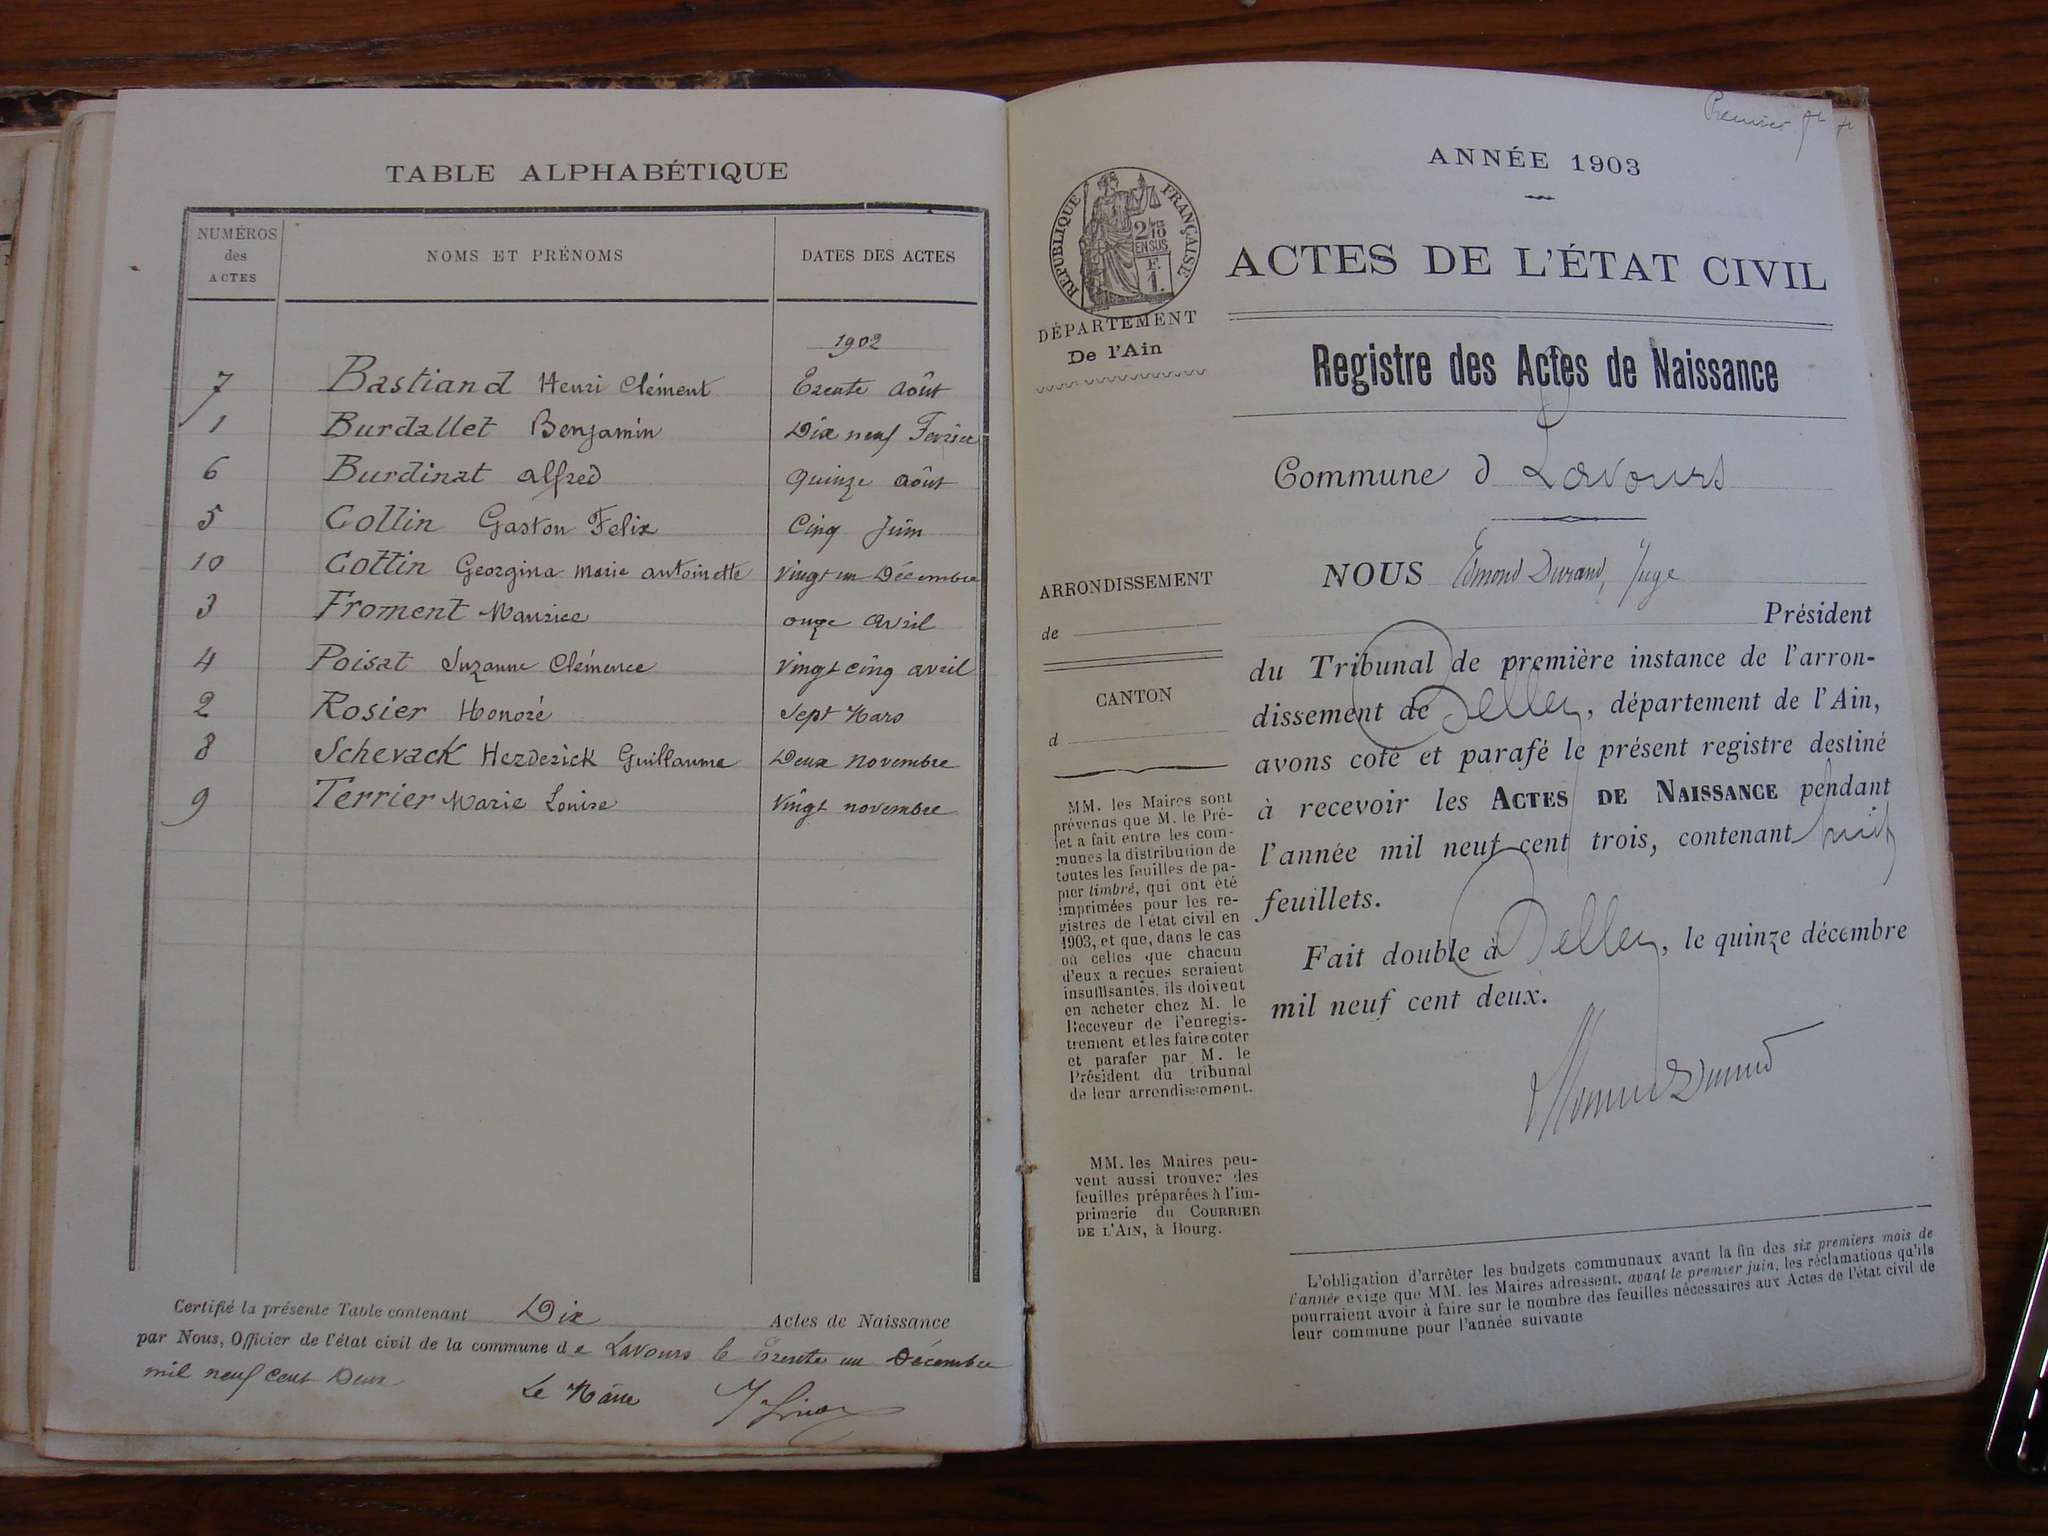 TABLE ALPHABÉTIQUE
NUMÉROS des ACTES
NOMS ET PRÉNOMS
DATES DES ACTES
1902
7 Bastiand Henri Clément Trente Août
1 Burdallet Benjamin Dix neuf Fevrier
6 Burdinat Alfred Quinze Août
5 Collin Gaston Felix Cinq Juin
10 Cottin Georgina Marie Antoinette Vingt un Décembre
3 Froment Maurice onze Avril
4 Poisat Suzanne Clémence Vingt cinq avril
2 Rosier Honoré Sept Mars
8 Schevack Herderick Guillaume Deux novembre
9 Terrier Marie Louise Vingt novembre
Certifié la présente Table contenant Dix Actes de Naissance
par Nous, Officier de l'état civil de la commune de Lavours le Trente un Décembre
mil neuf cent Deux
Le Maire
Premier
ANNÉE 1903
RÉPUBLIQUE FRANÇAISE
2/10
EN SUS
F.
1.
DÉPARTEMENT
De l'Ain
ACTES DE L'ÉTAT CIVIL
Registre des Actes de Naissance
Commune d Lavours
ARRONDISSEMENT
de
CANTON
d
NOUS Edmond Durand, Juge
Président
du Tribunal de première instance de l'arron-
dissement de Belley, département de l'Ain,
avons coté et parafé le présent registre destiné
à recevoir les ACTES DE NAISSANCE pendant
l'année mil neuf cent trois, contenant huit
feuillets.
Fait double à Belley, le quinze décembre
mil neuf cent deux.
Durand
MM. les Maires sont
prévenus que M. le Pré-
fet a fait entre les com-
munes la distribution de
toutes les feuilles de pa-
pier timbré, qui ont été
imprimées pour les re-
gistres de l'état civil en
1903, et que, dans le cas
où celles que chacun
d'eux a reçues seraient
insuffisantes, ils doivent
en acheter chez M. le
Receveur de l'enregis-
trement et les faire coter
et parafer par M. le
Président du tribunal
de leur arrondissement.
MM. les Maires peu-
vent aussi trouver des
feuilles préparées à l'im-
primerie du COURRIER
DE L'AIN, à Bourg.
L'obligation d'arrêter les budgets communaux avant la fin des six premiers mois de
l'année exige que MM. les Maires adressent, avant le premier juin, les réclamations qu'ils
pourraient avoir à faire sur le nombre des feuilles nécessaires aux Actes de l'état civil de
leur commune pour l'année suivante